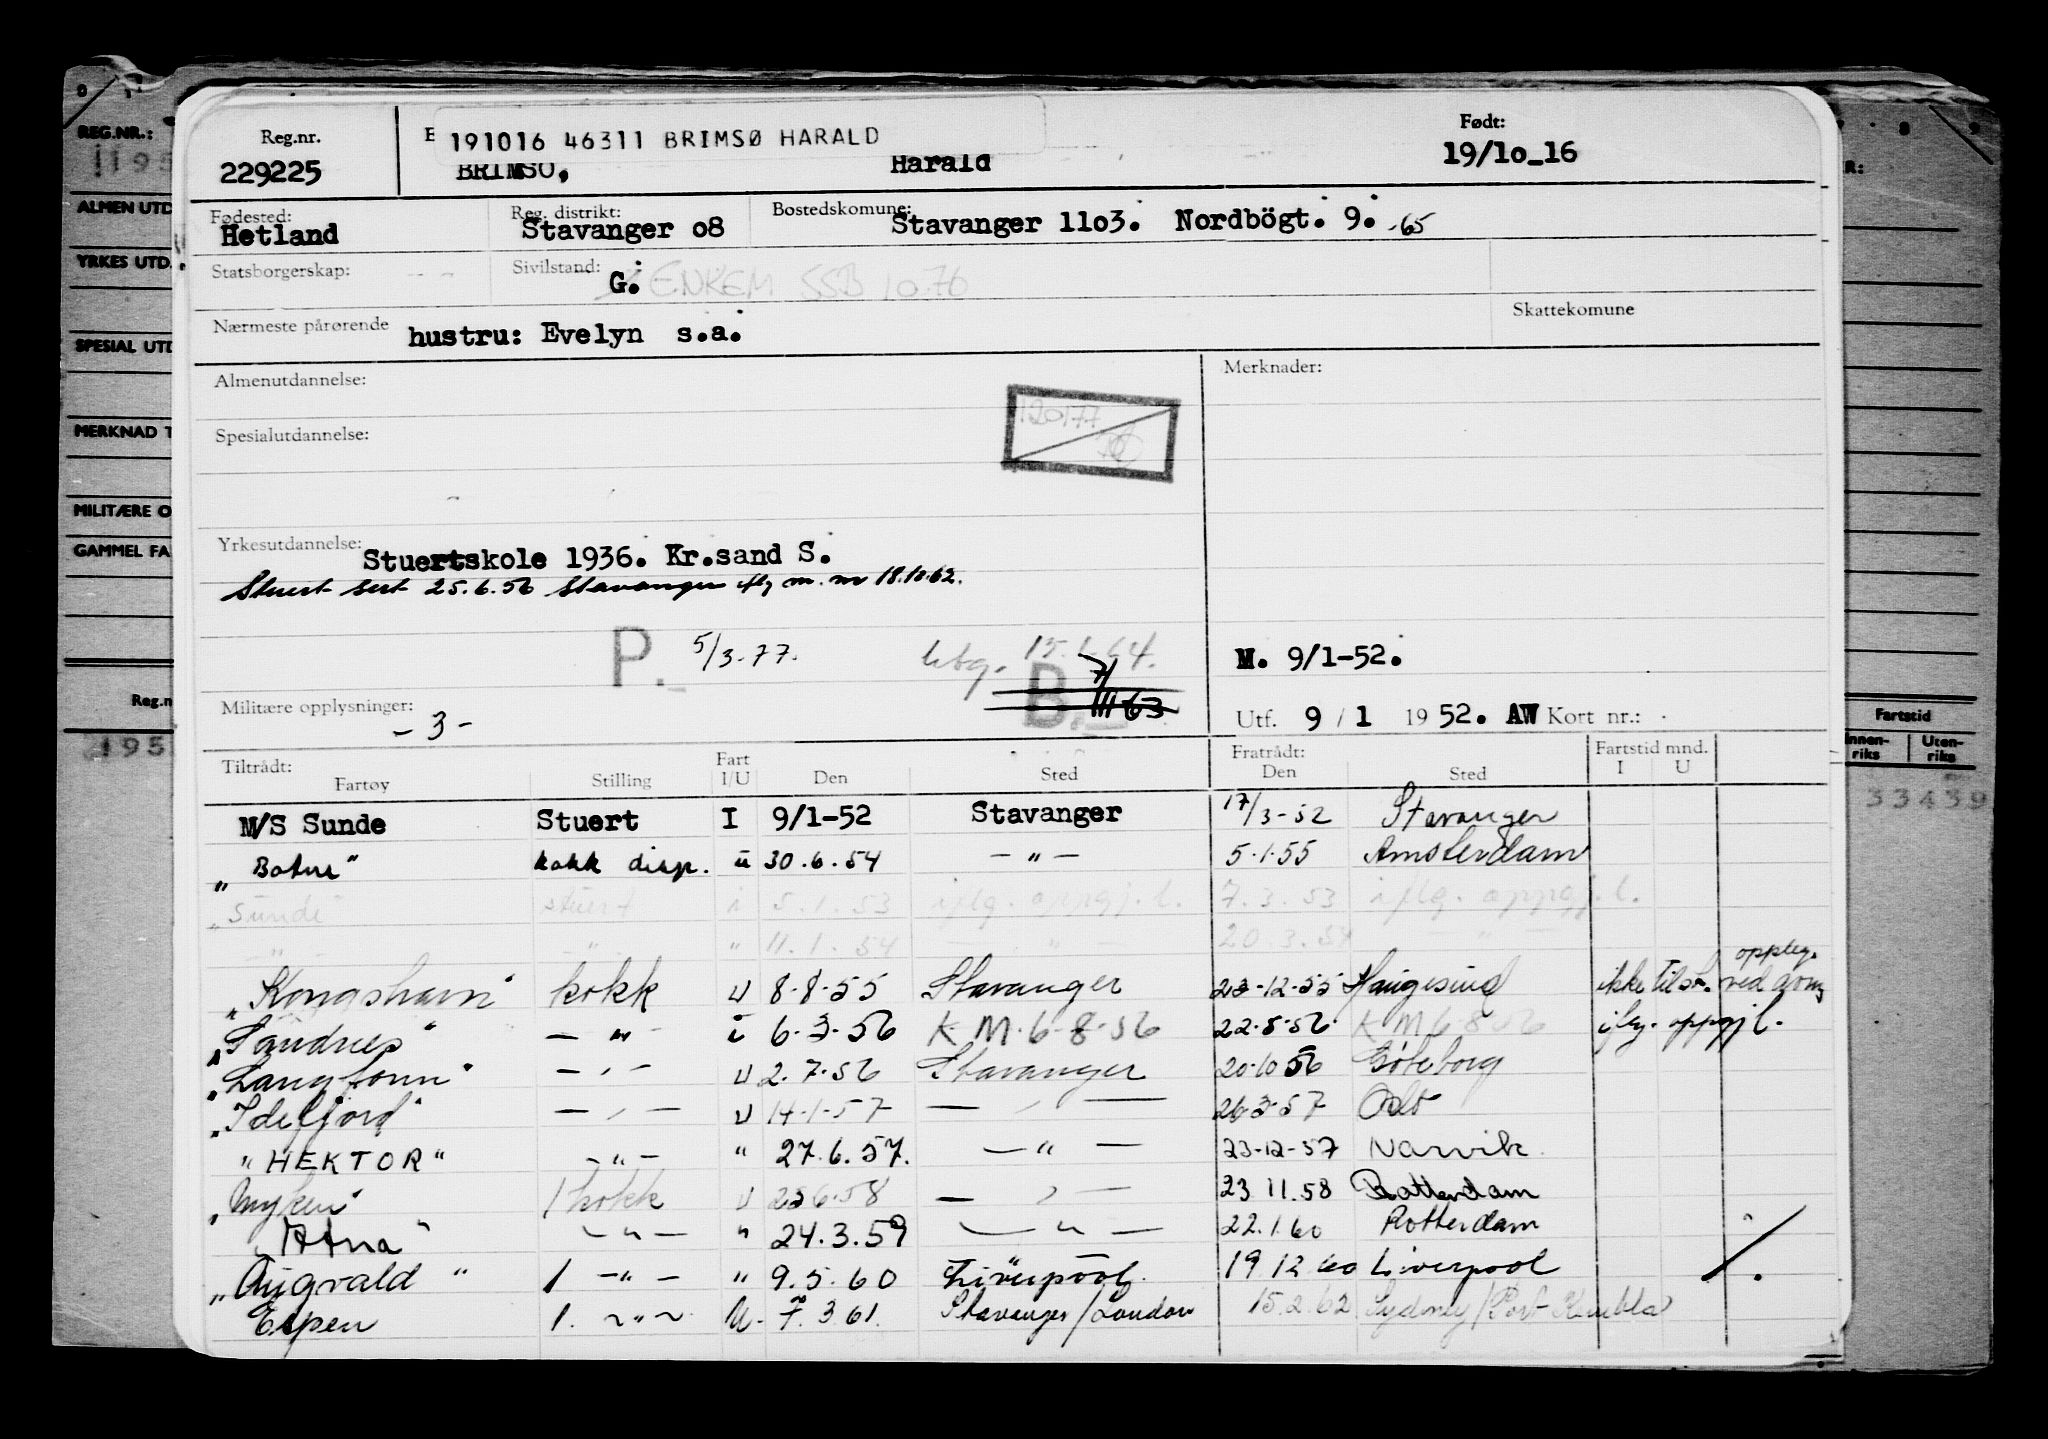 Reg.nr. E 191016 46311 BRIMSØ HARALD Født:
229225 BRIMSØ, Harald 19/1o_16
Fødested: Reg. distrikt: Bostedskomune:
Hetland Stavanger o8 Stavanger 11o3. Nordbögt. 9. 65
Statsborgerskap: Sivilstand: G. ENKEM SSB 10.76
Nærmeste pårørende hustru: Evelyn s.a. Skattekomune
Almenutdannelse: Merknader:
120177
Spesialutdannelse:
Yrkesutdannelse: Stuertskole 1936. Kr.sand S.
Stuert sert 25.6.56 Stavanger m. nr 18.10.62.
P. 5/3-77. utg. 15.1-64. M. 9/1-52.
B. 7/III 63
Militære opplysninger: -3- Utf. 9/1 1952. AW Kort nr.:
Tiltrådt: Fartøy Stilling Fart I/U Den Sted Fratrådt: Den Sted Fartstid mnd. I U
M/S Sunde Stuert I 9/1-52 Stavanger 17/3-52 Stavanger
kokk disp. u 30.6.54 -"- 5.1.55 Amsterdam
"Sunde" stuert i 5.1.53 iflg. oppgj.l. 7.3.53 iflg. oppgj.l.
" " " 11.1.54 - " - 20.3.54 - " -
"Kongshavn" kokk U 8-8-55 Stavanger 23-12-55 Haugesund ikke tilst. ved
"Sandnes" -"- i 6-3-56 K.M.6-8-56 22-5-56 K M 6-8-56 oppgj l.
"Langfonn" -"- U 2.7.56 Stavanger 20-10 56 Göteborg
"Idefjord" -"- U 14-1-57 -"- 26-3-57 Oslo
"HEKTOR" -"- " 27.6.57. -"- 23-12-57 Narvik
"Myken" 1 kokk U 6.58 -"- 23 11.58 Rotterdam
"Atna" -"- " 24.3.59 -"- 22.1.60 Rotterdam
"Augvald" 1 -"- " 9.5.60 Liverpool 19 12 60 Liverpool
Espen 1. -"- U. 7.3 61. Stavanger/London 15.2.62 Sydney/Port Kembla
REG.NR.:
1195
ALMEN UTD
YRKES UTD.
SPESIAL UTD
MERKNAD T
MILITÆRE O
GAMMEL FA
Reg.n
195
R:
Fartstid
Innen-riks Uten-riks
33439